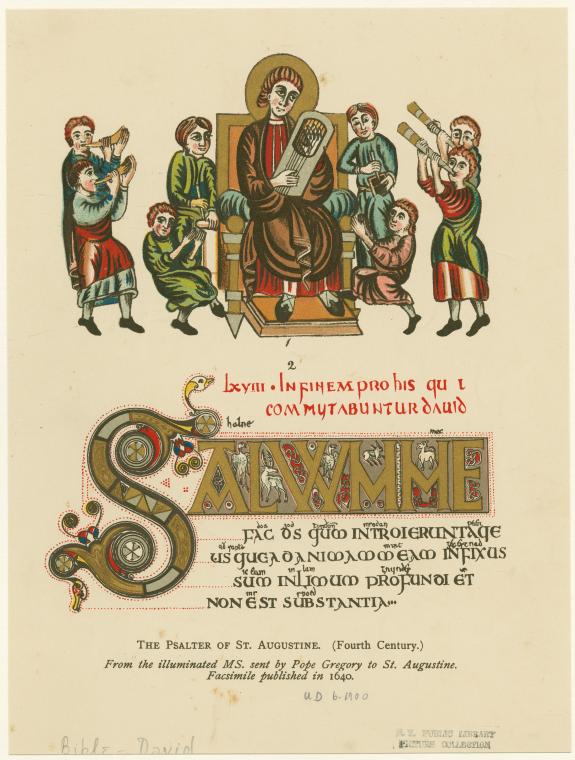 1
2
LXVIII · IN FINEM PRO his qui
COMMUTABUNTUR DAVID
halne
mec
SALVVM ME
FAC DS QUM INTROIERUNT AQE
US QUE AD ANIMAM MEAM INFIXUS
SUM IN LIMUM PROFUNDI ET
NON EST SUBSTANTIA...
THE PSALTER OF ST. AUGUSTINE. (Fourth Century.)
From the illuminated MS. sent by Pope Gregory to St. Augustine.
Facsimile published in 1640.
UD 6-1900
Bible - David
N.Y. PUBLIC LIBRARY
PICTURE COLLECTION